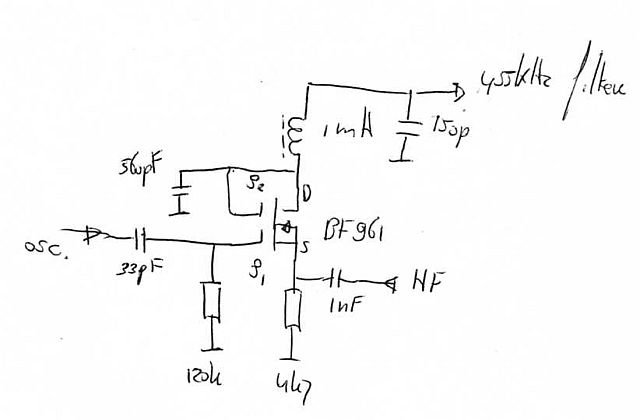 455kHz filter
1mH
150p
560pF
g2
D
BF961
S
osc.
33pF
g1
HF
1nF
120k
4k7